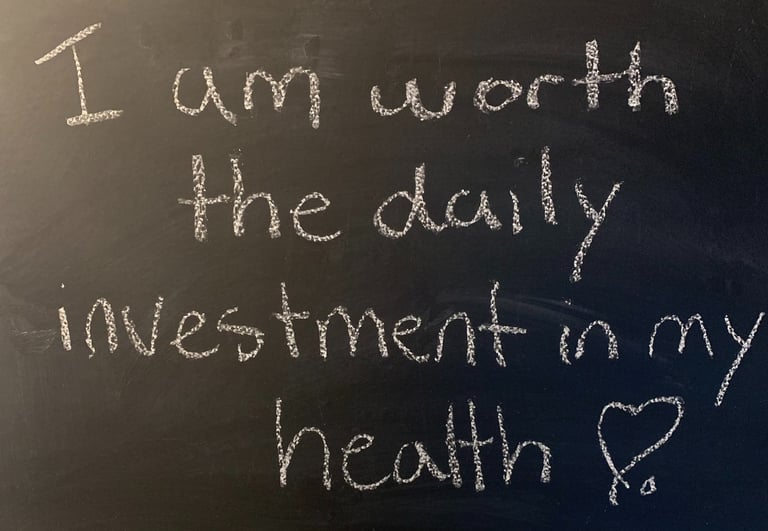 I am worth
the daily
investment in my
health